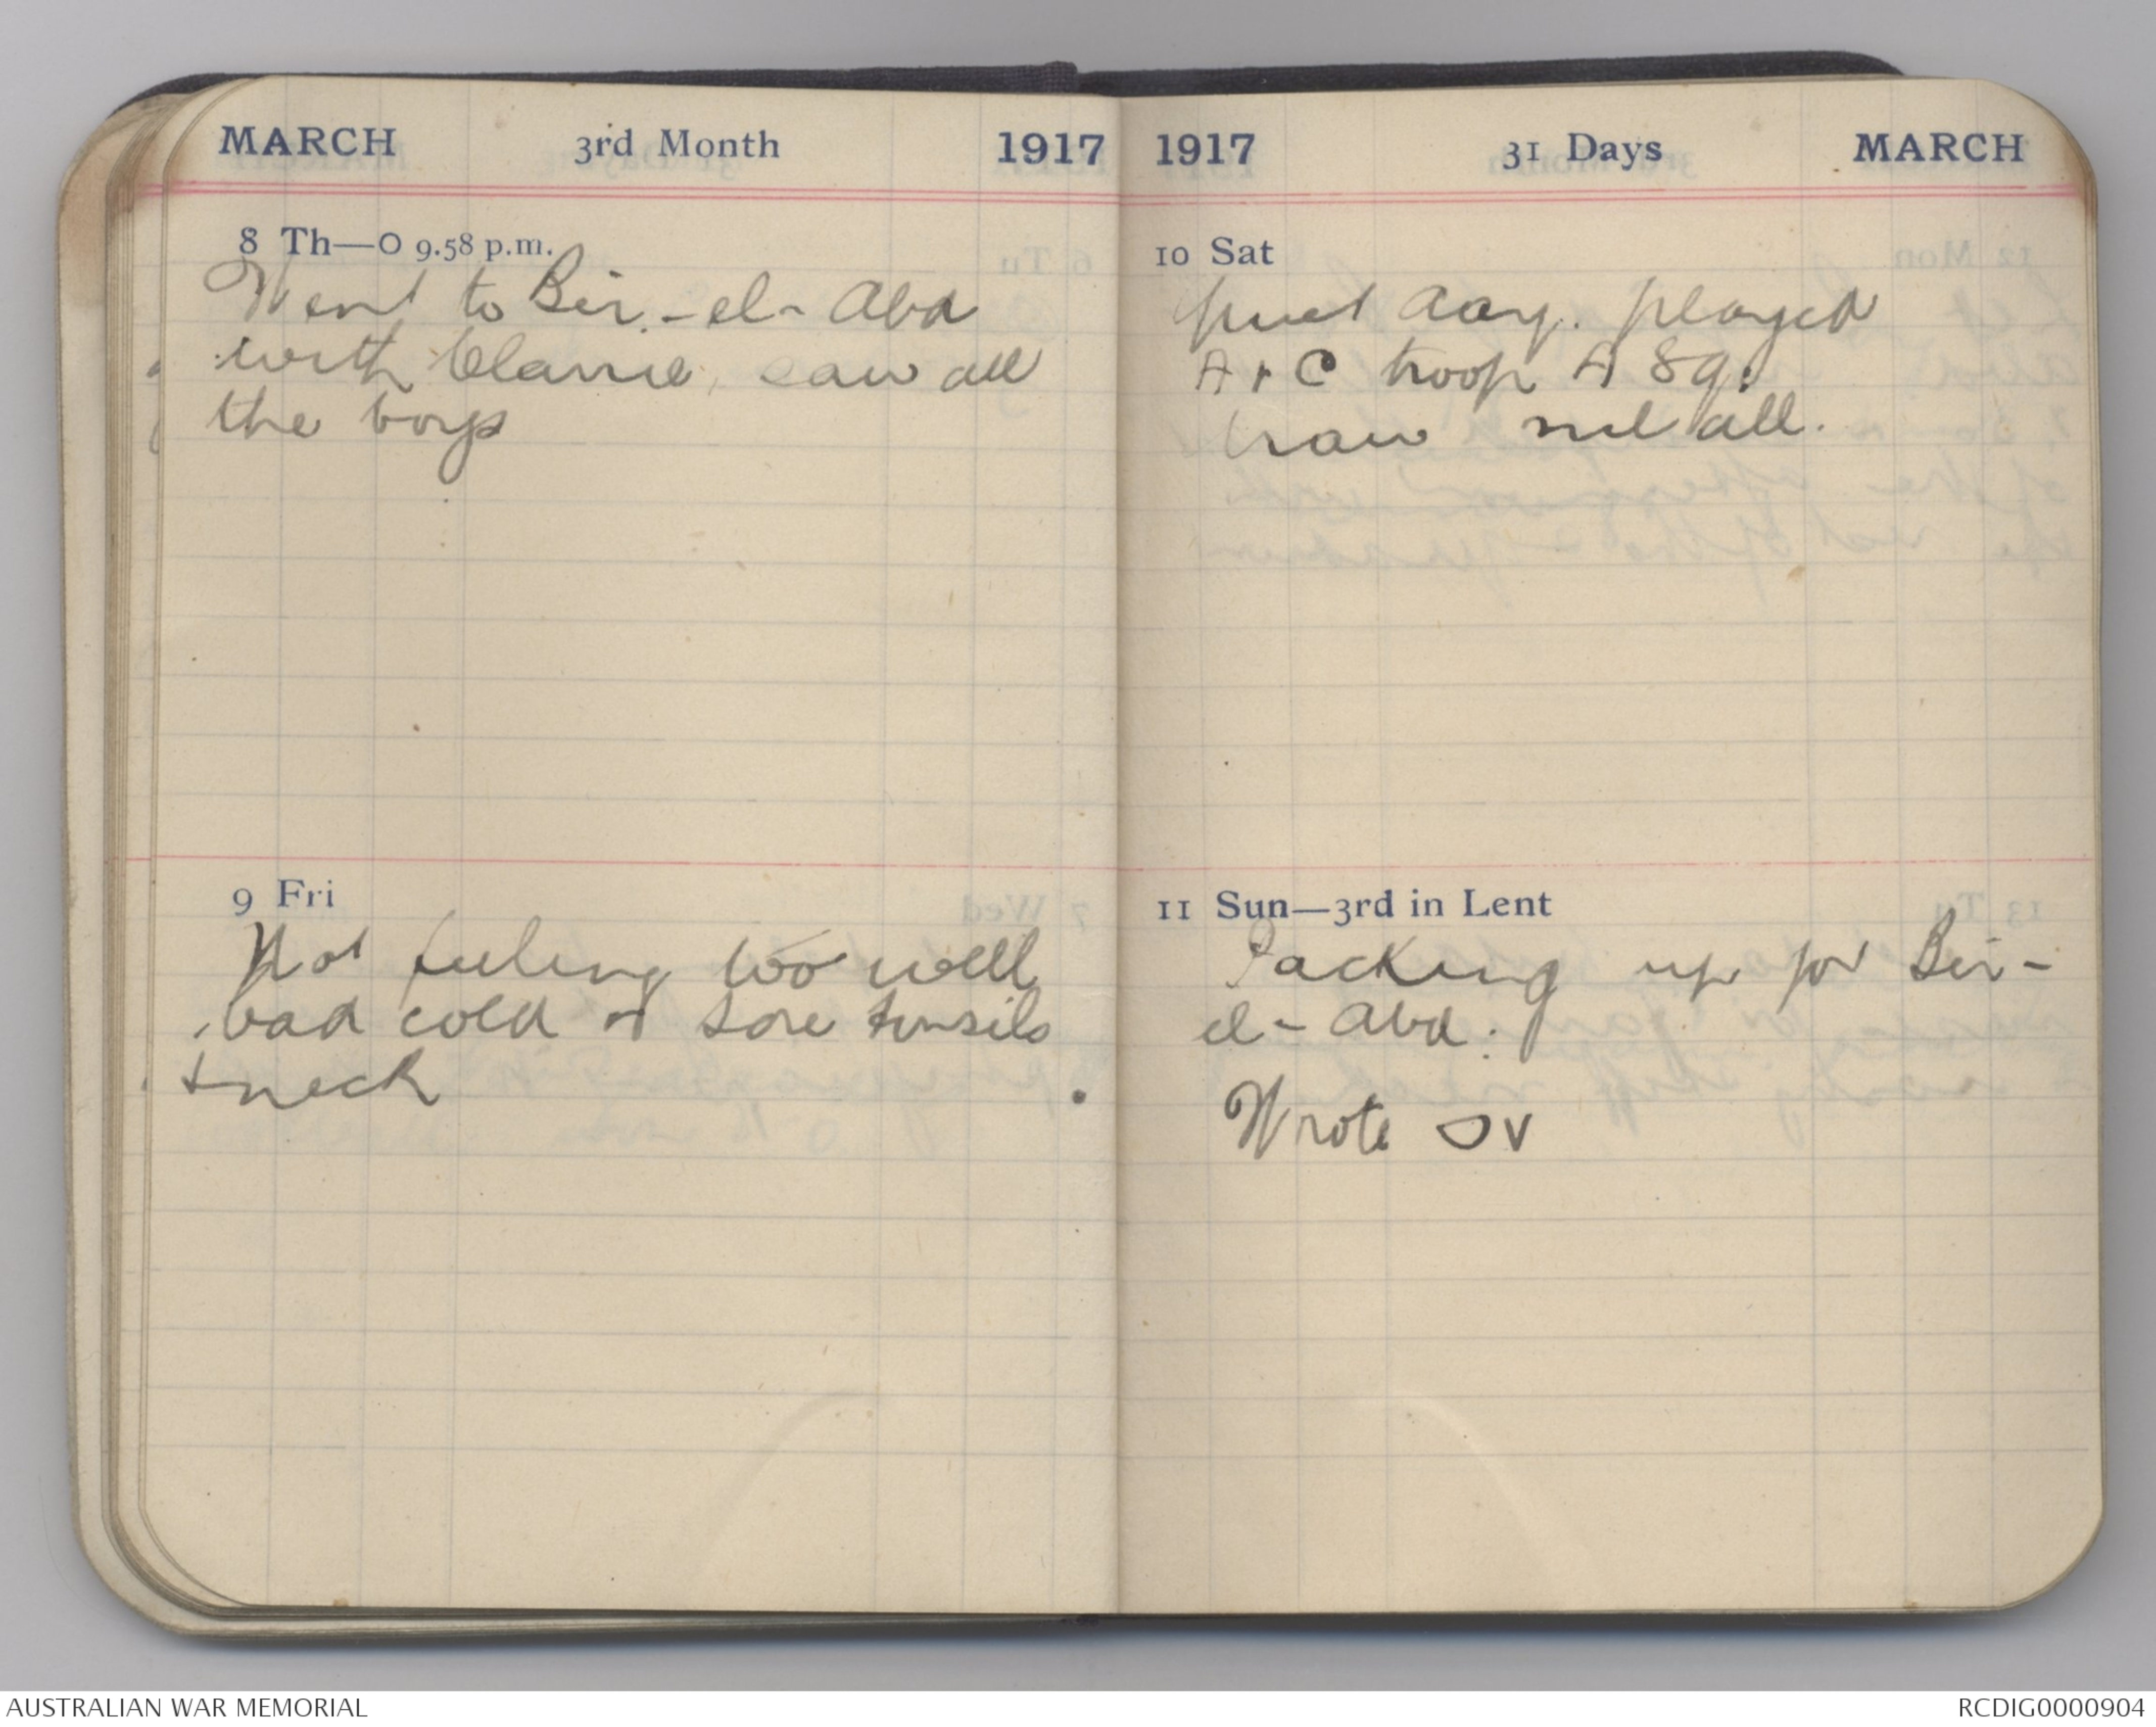 MARCH 3rd Month 1917
8 Th—O 9.58 p.m.
Went to Bir-el-Abd
with Clarrie, saw all
the boys
9 Fri
Not feeling too well
bad cold & sore tonsils
& neck
1917 31 Days MARCH
10 Sat
quiet day. played
A & C troop A Sq.
Draw nil all.
11 Sun—3rd in Lent
Packing up for Bir-
el-Abd.
Wrote
AUSTRALIAN WAR MEMORIAL
RCDIG0000904